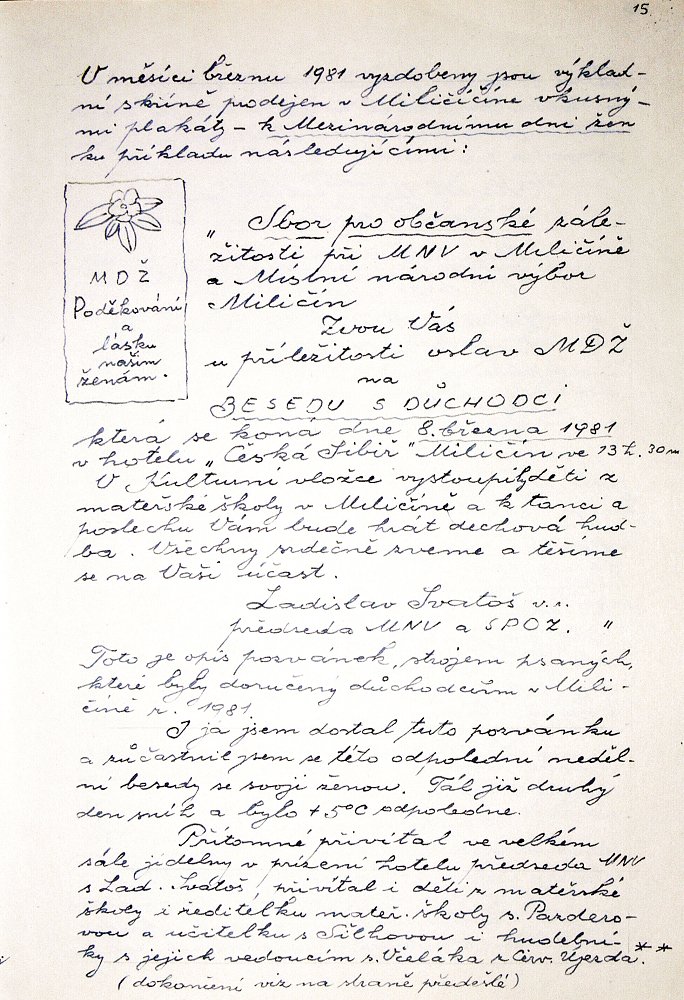 15
V měsíci březnu 1981 vyzdobeny jsou výklad-
ní skříně prodejen v Miličíně vkusný-
mi plakáty - k Mezinárodnímu dni žen
ku příkladu následujícími:
MDŽ
Poděkování
a
lásku
našim
ženám.
„ Sbor pro občanské zále-
žitosti při MNV v Miličíně
a Místní národní výbor
Miličín
Zvou Vás
u příležitosti oslav MDŽ
na
BESEDU S DŮCHODCI
která se koná dne 8. března 1981
v hotelu „Česká Sibiř" Miličín ve 13 h. 30 m
V Kulturní vložce vystoupily děti z
mateřské školy v Miličíně a k tanci a
poslechu Vám bude hrát dechová hud-
ba. Všechny srdečně zveme a těšíme
se na Vaši účast.
Ladislav Svatoš v.r.
předseda MNV a SPOZ. "
Toto je opis pozvánek, strojem psaných,
které byly doručeny důchodcům v Mili-
číně r. 1981
I já jsem dostal tuto pozvánku
a zúčastnil jsem se této odpolední neděl-
ní besedy se svojí ženou. Tál již druhý
den sníh a bylo +5°C odpoledne.
Přítomné přivítal ve velkém
sále jídelny v přízemí hotelu předseda MNV
s Lad. Svatoš, přivítal i děti z mateřské
školy i ředitelku mateř. školy s. Pardero-
vou a učitelku s Šilhovou i hudební-
ky s jejich vedoucím s. Včeláka z Červ. Újezda. **
(dokončení viz na straně předešlé)